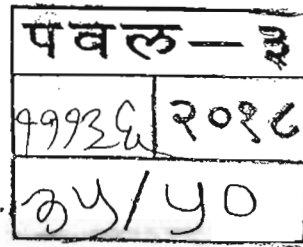 पवल - ३
११९३६ २०१८
३५/५०